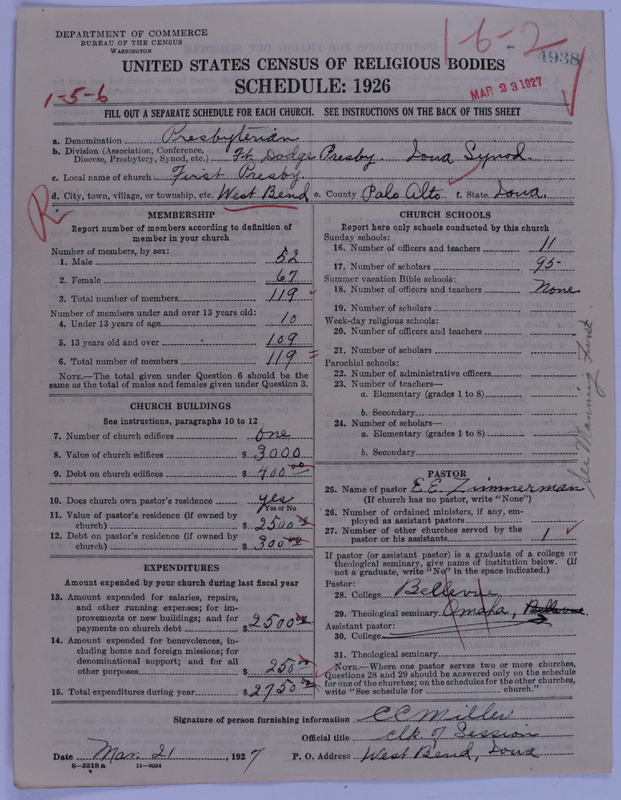 DEPARTMENT OF COMMERCE
BUREAU OF THE CENSUS
WASHINGTON
1-6-2
4938
UNITED STATES CENSUS OF RELIGIOUS BODIES
SCHEDULE: 1926
MAR 23 1927
1-5-6
FILL OUT A SEPARATE SCHEDULE FOR EACH CHURCH. SEE INSTRUCTIONS ON THE BACK OF THIS SHEET
a. Denomination Presbyterian
b. Division (Association, Conference, Diocese, Presbytery, Synod, etc.) Ft. Dodge Presby. Iowa Synod.
c. Local name of church First Presby
d. City, town, village, or township, etc. West Bend e. County Palo Alto f. State Iowa
R
MEMBERSHIP
Report number of members according to definition of
member in your church
Number of members, by sex:
1. Male 52
2. Female 67
3. Total number of members 119
Number of members under and over 13 years old:
4. Under 13 years of age 10
5. 13 years old and over 109
6. Total number of members 119
NOTE.—The total given under Question 6 should be the
same as the total of males and females given under Question 3.
CHURCH BUILDINGS
See instructions, paragraphs 10 to 12
7. Number of church edifices one
8. Value of church edifices $ 3000
9. Debt on church edifices $ 400.00
10. Does church own pastor's residence yes
Yes or No
11. Value of pastor's residence (if owned by
church) $ 2500.00
12. Debt on pastor's residence (if owned by
church) $ 300.00
EXPENDITURES
Amount expended by your church during last fiscal year
13. Amount expended for salaries, repairs,
and other running expenses; for im-
provements or new buildings; and for
payments on church debt $ 2500.00
14. Amount expended for benevolences, in-
cluding home and foreign missions; for
denominational support; and for all
other purposes $ 250.00
15. Total expenditures during year $ 2750.00
CHURCH SCHOOLS
Report here only schools conducted by this church
Sunday schools:
16. Number of officers and teachers 11
17. Number of scholars 95
Summer vacation Bible schools:
18. Number of officers and teachers None
19. Number of scholars
Week-day religious schools:
20. Number of officers and teachers
21. Number of scholars
Parochial schools:
22. Number of administrative officers
23. Number of teachers—
a. Elementary (grades 1 to 8)
b. Secondary
24. Number of scholars—
a. Elementary (grades 1 to 8)
b. Secondary
See Manning
PASTOR
25. Name of pastor E.E. Zimmerman
(If church has no pastor, write "None")
26. Number of ordained ministers, if any, em-
ployed as assistant pastors
27. Number of other churches served by the
pastor or his assistants 1
If pastor (or assistant pastor) is a graduate of a college or
theological seminary, give name of institution below. (If
not a graduate, write "No" in the space indicated.)
Pastor:
28. College Bellevue
29. Theological seminary Omaha, Bellevue
Assistant pastor:
30. College
31. Theological seminary
NOTE.—Where one pastor serves two or more churches,
Questions 28 and 29 should be answered only on the schedule
for one of the churches; on the schedules for the other churches,
write "See schedule for church."
Signature of person furnishing information C C Miller
Official title Clk. of Session
Date Mar. 21, 1927 P. O. Address West Bend, Iowa
8-5518 a 11-9054